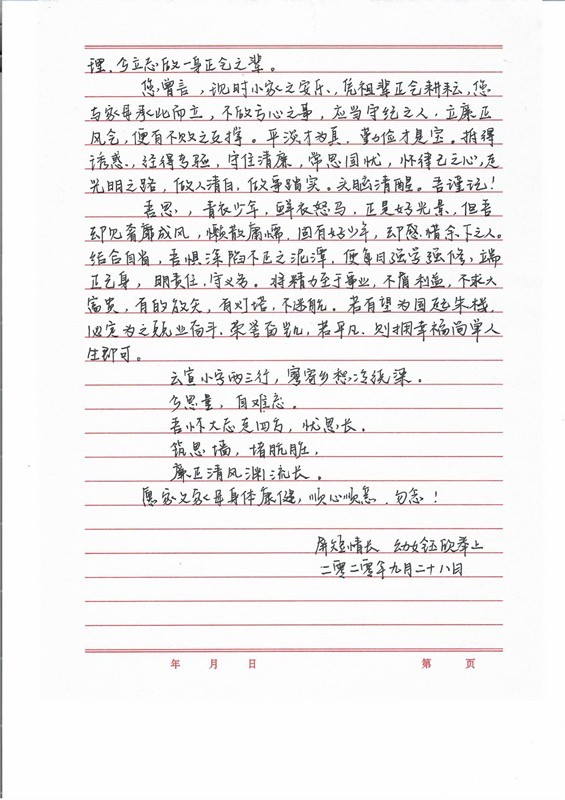 理，今立志做一身正气之辈。
您曾言，现时小家之安乐，凭祖辈正气耕耘，您
与家母承此而立，不做亏心之事，应当守纪之人，立廉正
风气，便有不败之支撑。平淡才为真，勤俭才是宝。拒得
诱惑，经得考验，守住清廉，常思国忧，怀律己之心，走
光明之路，做人清白，做事踏实。头脑清醒。吾谨记！
吾思，青衣少年，鲜衣怒马，正是好光景，但吾
却见奢靡成风，懒散庸懦，固有好少年，却感惜余下之人。
结合自省，吾惧深陷不正之泥潭，便每日强学强修，端
正己身，明责任，守义务。将精力至于事业，不谋利益，不求大
富贵，有的放矢，有灯塔，不迷航。若有望为国之朱栈，
必定为之兢业奋斗，荣誉奋凯，若平凡，则拥幸福简单人
生即可。
云宣小字两三行，寥寄乡愁冷纸梁。
今思量，自难忘。
吾怀大志走四方，忧思长。
筑思墙，堵肮脏，
廉正清风渊流长。
愿家父家母身体康健，顺心顺意，勿念！
屏短情长 幼女钰欣奉上
二零二零年九月二十八日
年 月 日 第 页